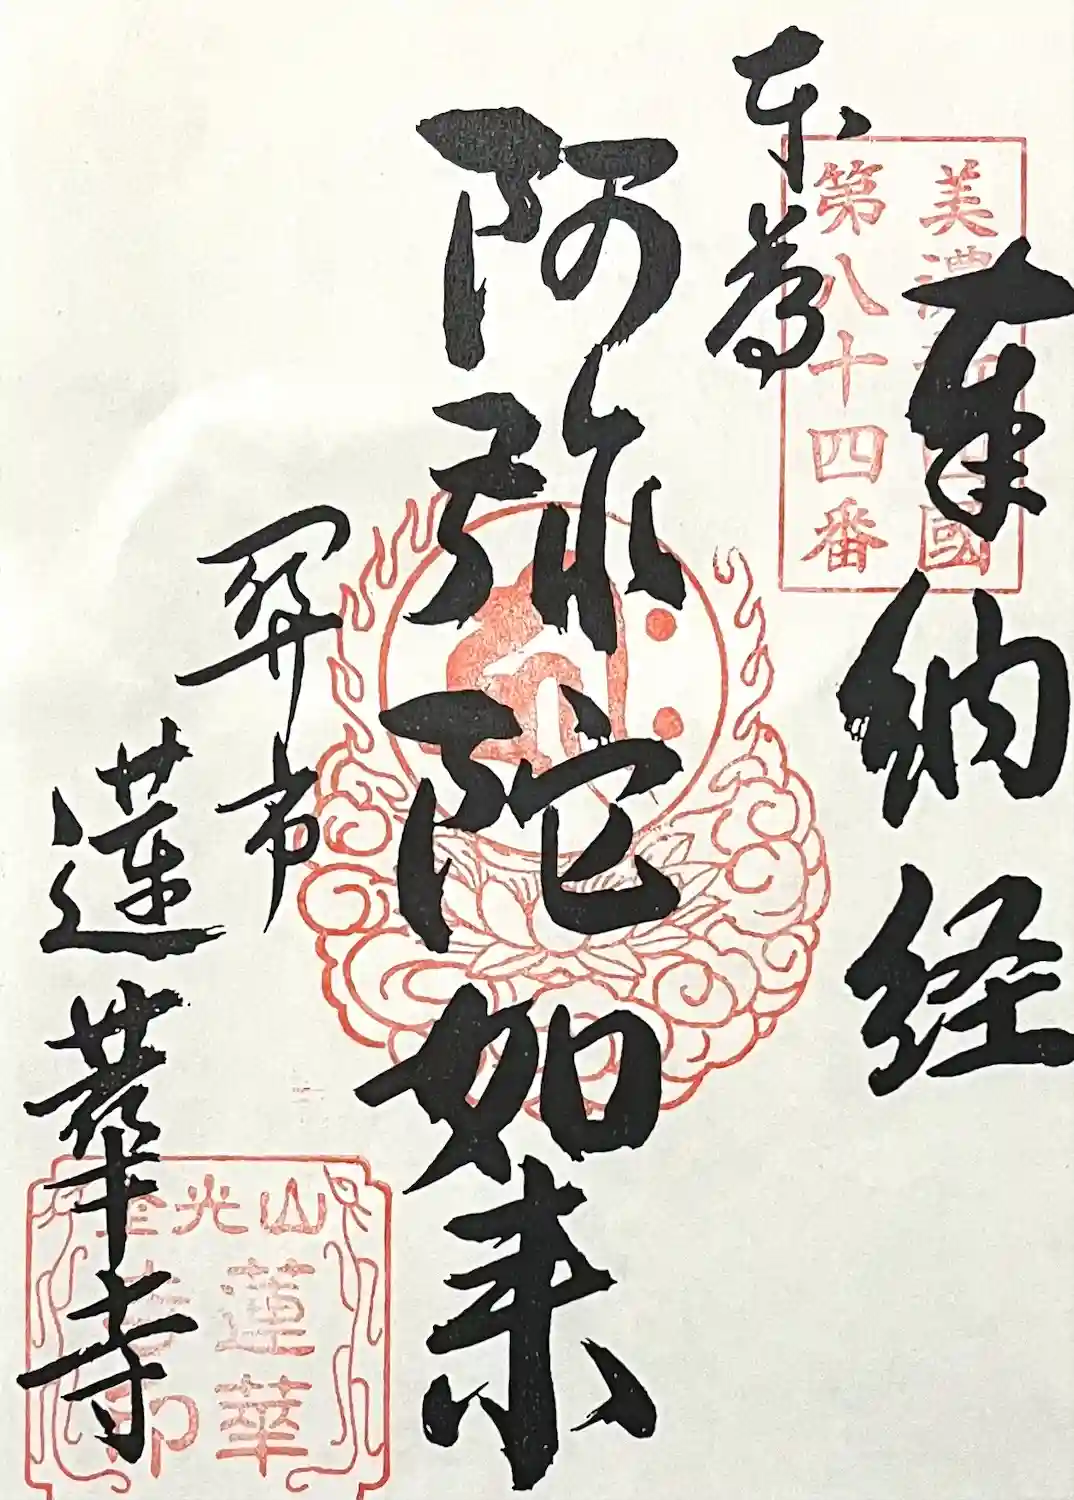 奉納経
美濃新四國
第八十四番
本尊
阿弥陀如来
関市
蓮華寺
金光山
蓮華
寺印